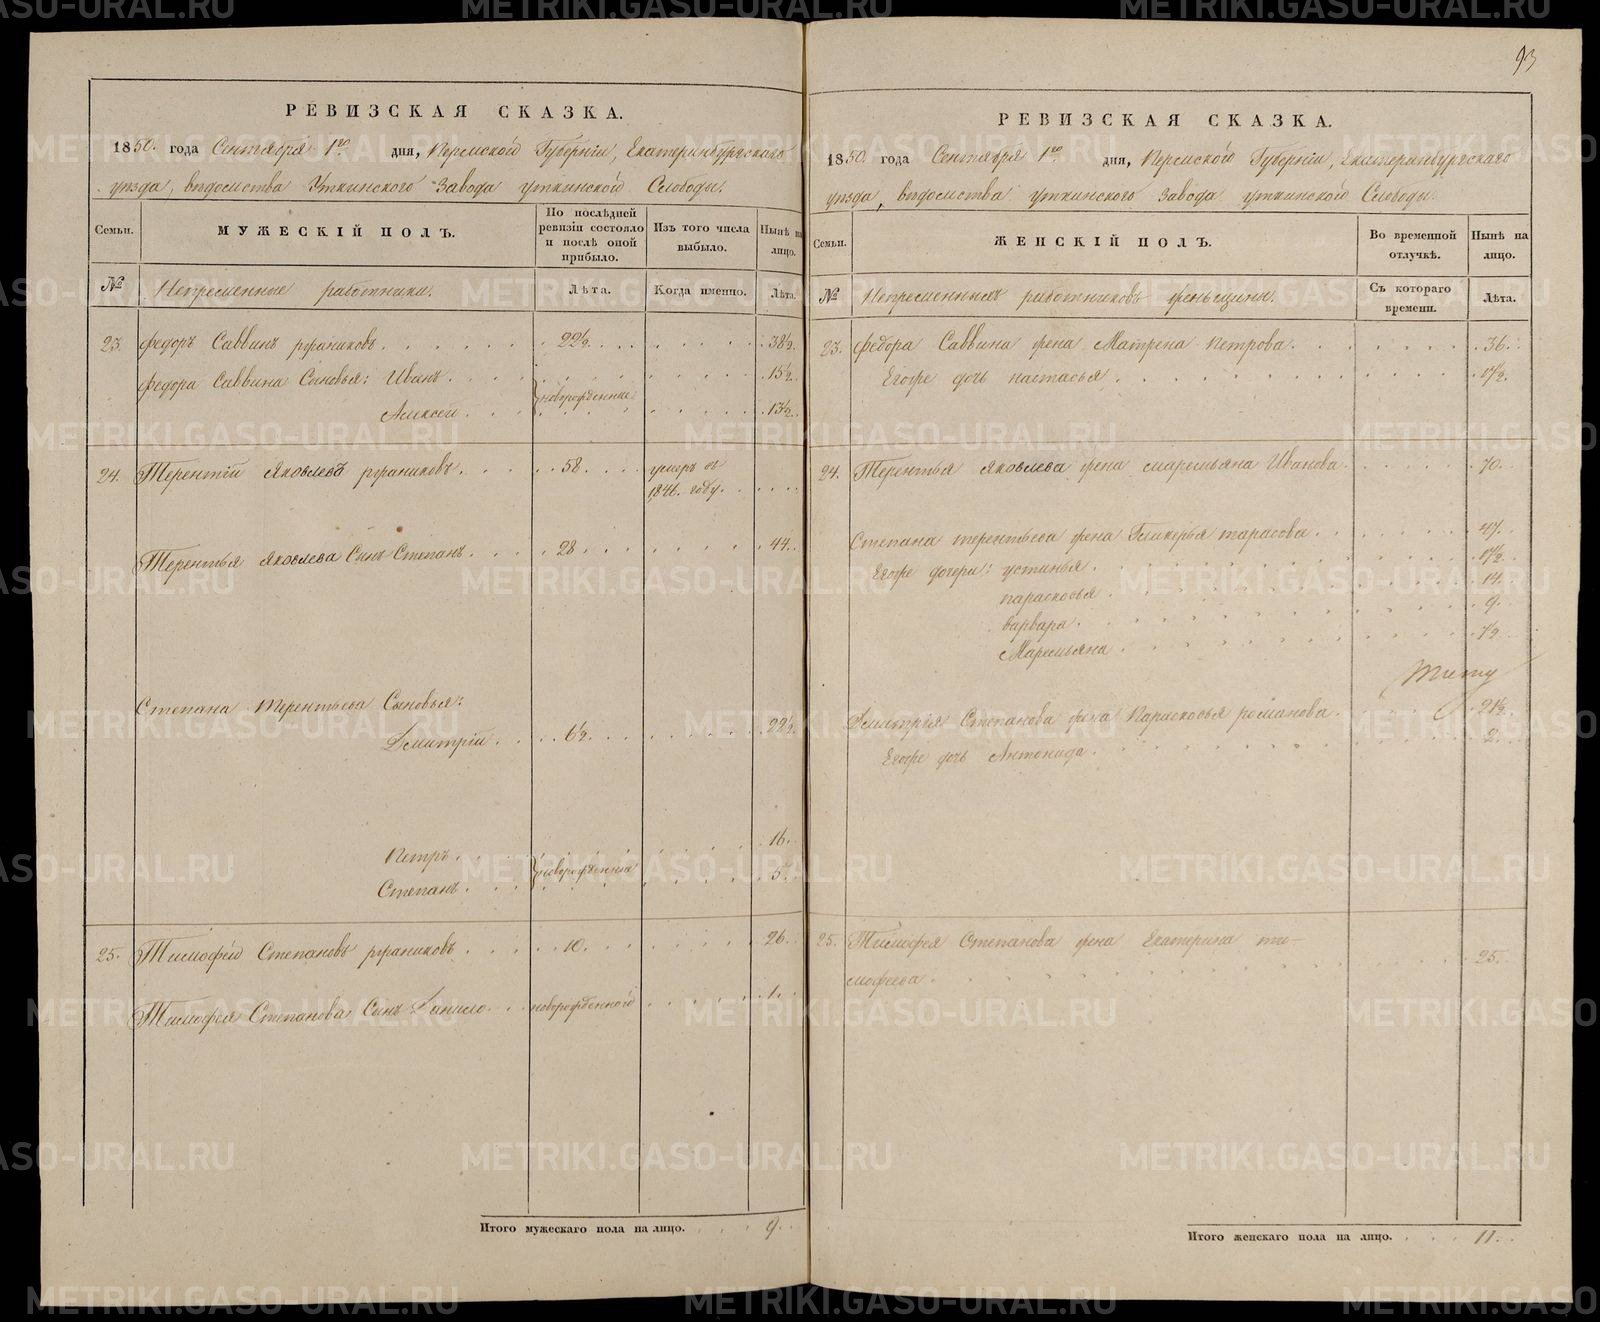 93
РЕВИЗСКАЯ СКАЗКА.
1850. года Сентября 1го дня, Пермской Губерніи, Екатеринбургскаго
уѣзда, вѣдомства Уткинского Завода уткинской Слободы.
Семьи.
МУЖЕСКІЙ ПОЛЪ.
По послѣдней ревизіи состояло и послѣ оной прибыло.
Изъ того числа выбыло.
Нынѣ на лицо.
№
Непременные работники.
Лѣта.
Когда именно.
Лѣта.
23. Федоръ Саввинъ 22½. 38½.
Федора Саввина Сыновья: Иванъ. новорожденные 15½.
Алексей. 13½.
24. Терентій Яковлевъ 58. умеръ въ
1846. году.
Терентья Яковлева Сынъ Степанъ. 28. 44.
Степана Терентьева Сыновья:
Дмитрій. 6½. 22½.
Петръ. новорожденныя 16.
Степанъ. 5.
25. Тимофей Степановъ 10. 26.
Тимофея Степанова Сынъ Данило. новорожденного 1.
Итого мужескаго пола на лицо. 9.
РЕВИЗСКАЯ СКАЗКА.
1850. года Сентября 1го дня, Пермской Губерніи, Екатеринбургскаго
уѣзда, вѣдомства уткинскогъ Завода уткинской Слободы.
Семьи.
ЖЕНСКІЙ ПОЛЪ.
Во временной отлучкѣ.
Нынѣ на лицо.
№
Непременныхъ работниковъ женьщины.
Съ котораго времени.
Лѣта.
23. Федора Саввина жена Матрена Петрова. 36.
Егоже дочь настасья. 17½.
24. Терентья Яковлева жена маремьяна Иванова. 70.
Степана терентьева жена Гликерья тарасова. 47.
Егоже дочери: устинья. 17½.
параскосья. 14.
варвара. 9.
Маремьяна. ½.
Дмитрія Степанова жена Параскосья романова. 21½.
Егоже дочь Антонида. 2.
25. Тимофея Степанова жена Екатерина ти-
мофеева. 25.
Итого женскаго пола на лицо. 11.
METRIKI.GASO-URAL.RU